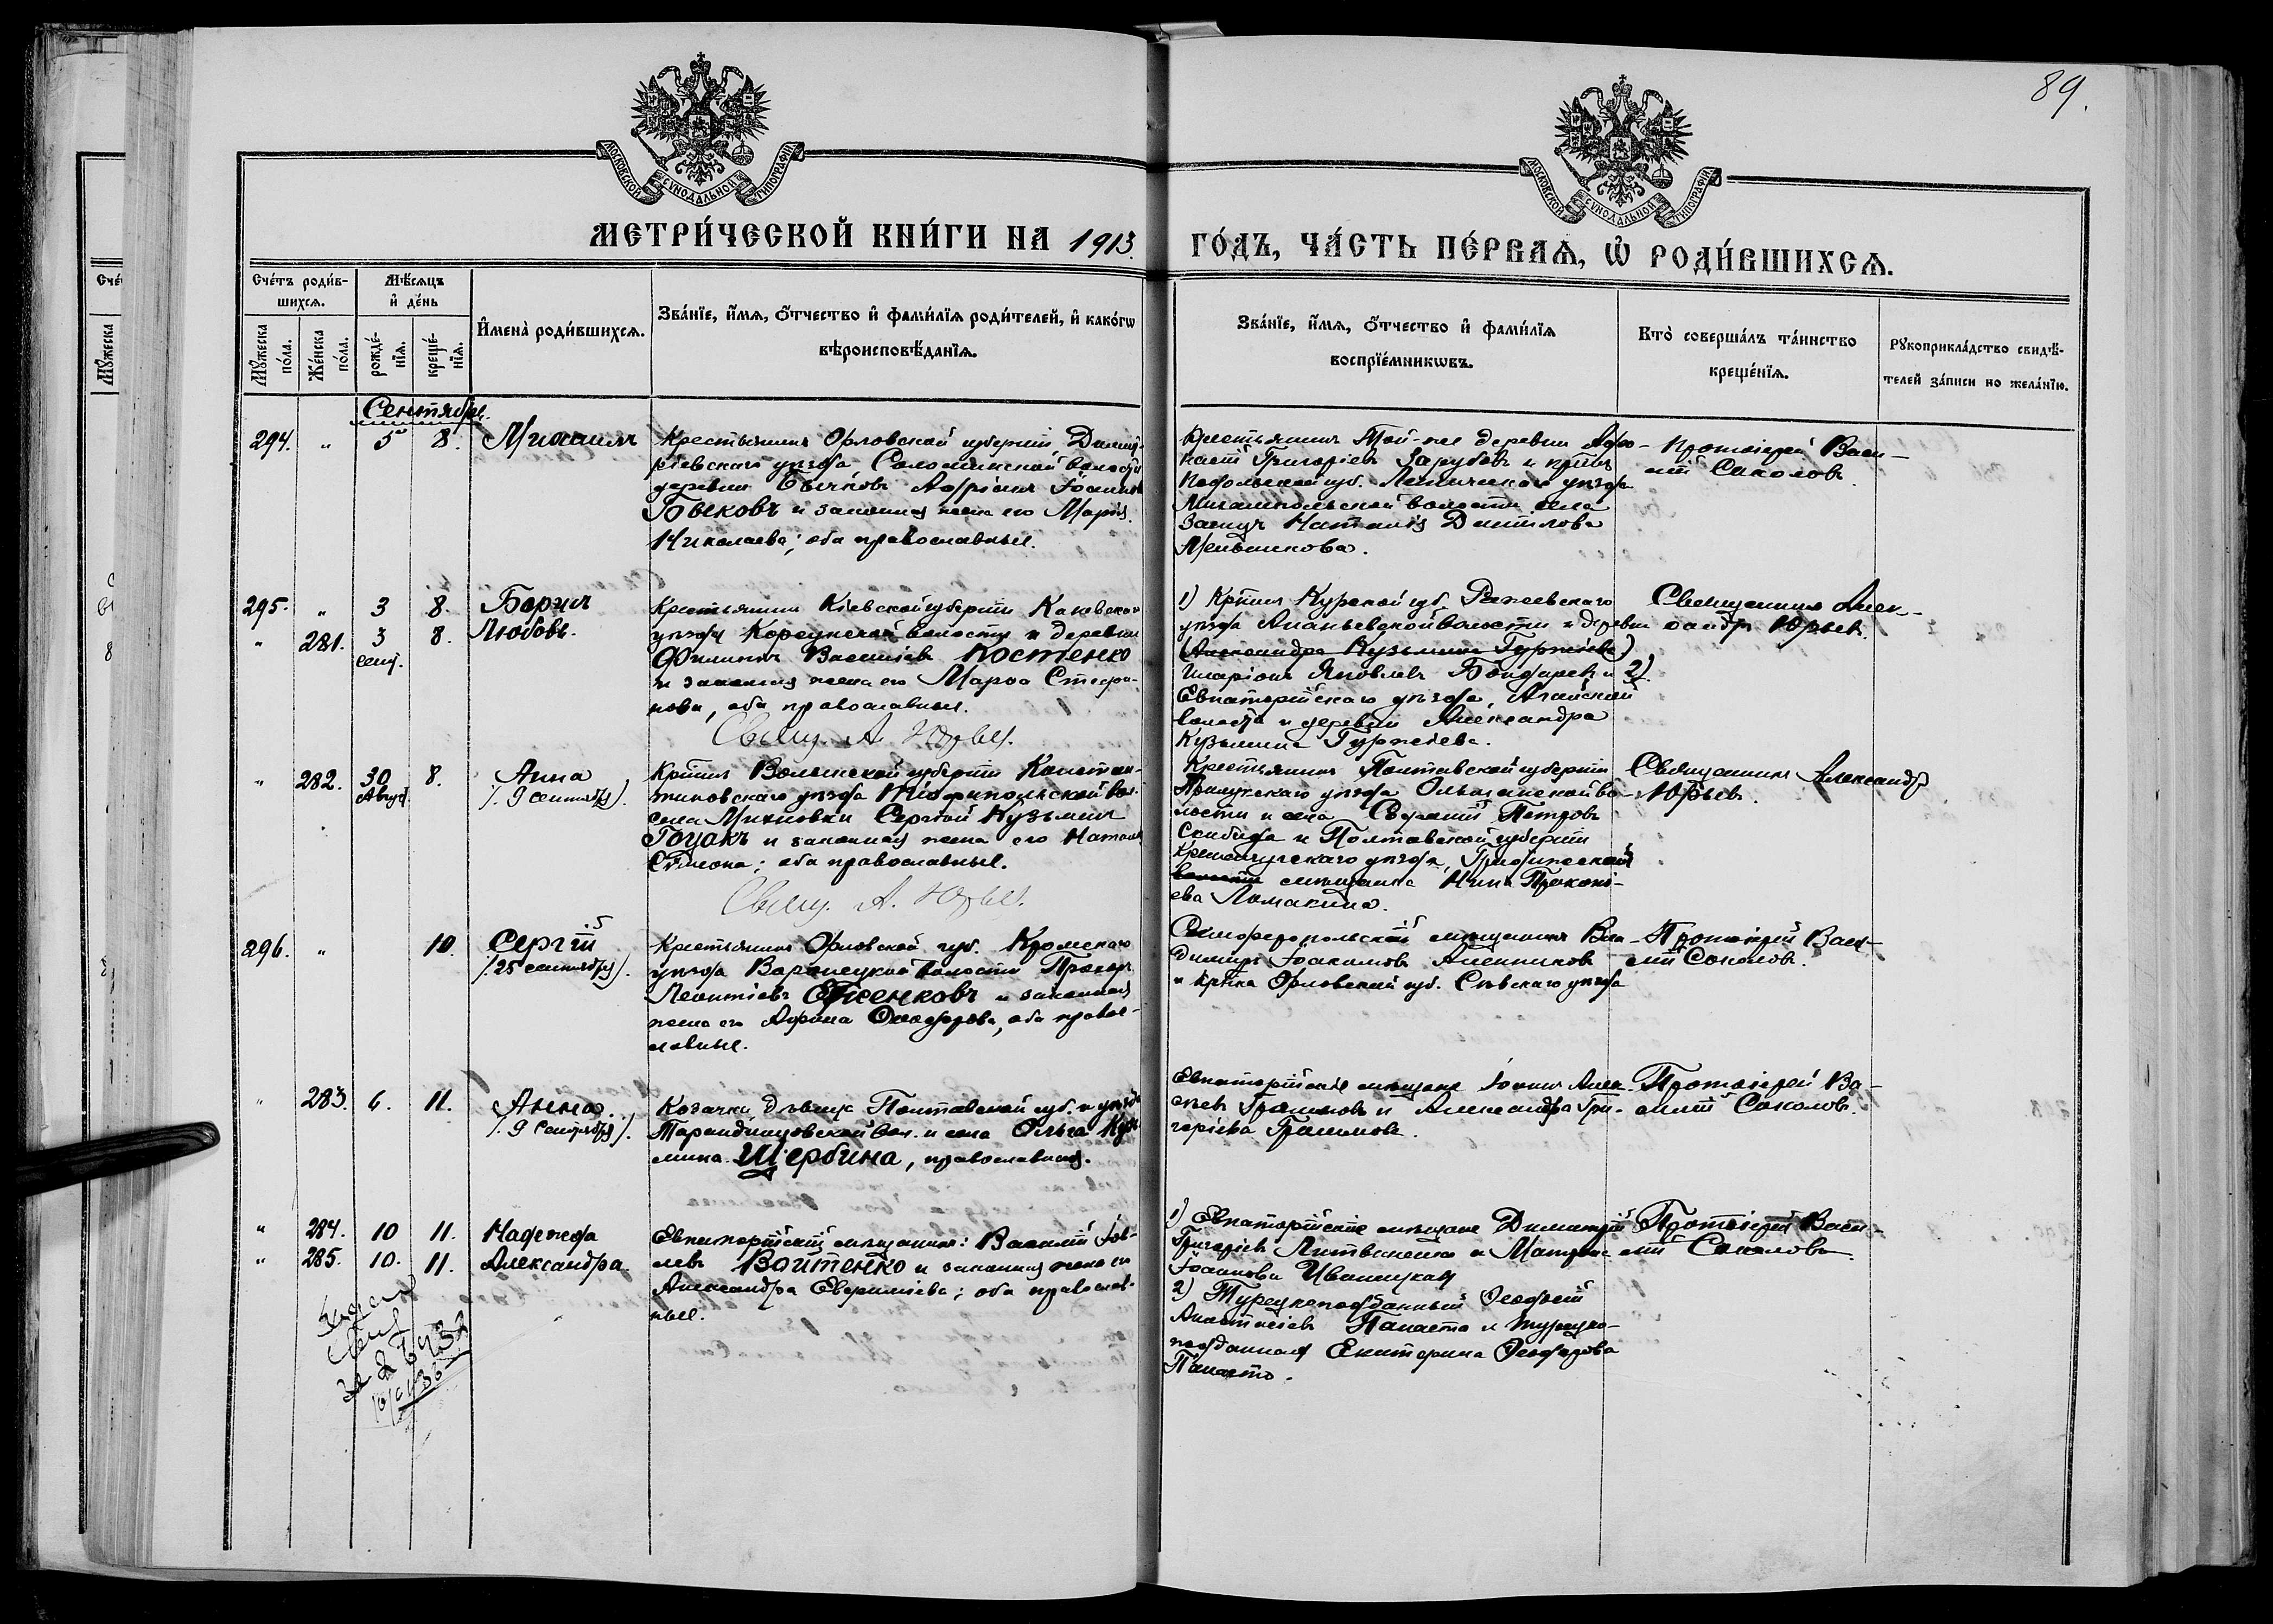 89.
МОСКОВСКОЙ СѴНОДАЛЬНОЙ ТИПОГРАФІИ
МОСКОВСКОЙ СѴНОДАЛЬНОЙ ТИПОГРАФІИ
МЕТРИ́ЧЕСКОЙ КНИ́ГИ НА 1913. ГО́ДЪ, ЧА́СТЬ ПЕ́РВАѦ, Ѡ҆ РОДИ́ВШИХСѦ.
Сче́тъ роди́в-
шихсѧ.
Мꙋ́жеска по́ла.
Же́нска по́ла.
Мѣ́сѧцъ
и҆ де́нь
рожде́-нїѧ.
креще́-нїѧ.
И҆мена̀ роди́вшихсѧ.
Зва́нїе, и҆́мѧ, ѻ҆́тчество и҆ фами́лїѧ роди́телей, и҆ како́гѡ
вѣроисповѣ́данїѧ.
Зва́нїе, и҆́мѧ, ѻ҆́тчество и҆ фами́лїѧ
воспрїе́мникѡвъ.
Кто̀ соверша́лъ та́инство
креще́нїѧ.
Рꙋкоприкла́дство свидѣ́-
телей за́писи по жела́нїю.
Сентябрь.
294. " 5 8. Михаилъ
Крестьянинъ Орловской губерніи, Дмит-
ріевскаго уѣзда, Соломинской волости
деревни Бычковъ Адріанъ Іоанновъ
Быковъ и законная жена его Марія
Николаева; оба православные.
Крестьянинъ Той-же деревни Афо-
насій Григоріевъ Зарубовъ и кр-нка
Подольской губ. Летичевскаго уѣзда
Михампольской волости села
Наталія Данилова
Мельникова.
Протоіерей Васи-
лій Соколовъ.
295. " 3 8. Борисъ
" 281. 3 8. Любовь.
сент.
Крестьянинъ Кіевской губерніи Каневскаго
уѣзда Корсунской волости и деревни
Филиппъ Васильевъ Костенко
и законная жена его Марѳа Стефа-
нова, оба православные.
Свящ. А. Юрьев.
1) Кр-нинъ Курской губ.
уѣзда Ананьевской волости и деревни
(Александра Кузьмина Гуржіева)
Иларіонъ Яковлевъ Бондаревъ и 2)
Евпаторійскаго уѣзда,
волости и деревни Александра
Кузьмина Гуржіева.
Священникъ Алек-
сандръ Юрьевъ.
" 282. 30 8. Анна
Август. /. 9 сентября/.
Кр-нинъ Волынской губерніи Констан-
тиновскаго уѣзда Тіофипольской вол.
села Михновки Сергѣй Кузьминъ
Гоцакъ и законная жена его Наталія
Симеона; оба православные.
Свящ. А. Юрьев.
Крестьянинъ Полтавской губерніи
Прилукскаго уѣзда Ольшанской во-
лости и села Евдокій Петровъ
и Полтавской губерніи
Кременчугскаго уѣзда,
волости мѣщанка Нина Прокопі-
ева Ломакина.
Священникъ Александръ
Юрьевъ.
296. " 10. Сергій
/25 сентября/.
Крестьянинъ Орловской губ. Кромскаго
уѣзда Воронецкой волости Прохоръ
Леонтіевъ Евсенковъ и законная
жена его Ѳеодорова, оба право-
славные.
Симферопольскій мѣщанинъ Вла-
димиръ Іоакимовъ Алейниковъ
и кр-нка Орловской губ. Сѣвскаго уѣзда
Протоіерей Васи-
лій Соколовъ.
" 283. 6. 11. Анна
/. 9 Сентября/.
Козачка дѣвица Полтавской губ. и уѣзда
Тарандинцовской вол. и села Ольга Кузь-
мина Щербина, православная.
Евпаторійскіе мѣщане Іоаннъ Алек-
сѣевъ и Александра Гри-
горіева
Протоіерей Ва-
силій Соколовъ.
" 284. 10 11. Надежда
" 285. 10. 11. Александра
Евпаторійскій мѣщанинъ: Василій Іов-
левъ Войтенко и законная жена его
Александра Евфиміева; оба православ-
ные.
1) Евпаторійскіе мѣщане Димитрій
Григоріевъ Литвиненко и Матрона
Іоаннова Иваницкая
2) Турецкоподданный Ѳеодосій
Анастасіевъ Панасто и турецко-
подданная Екатерина Ѳеодорова
Панасто.
Протоіерей Васи-
лій Соколовъ